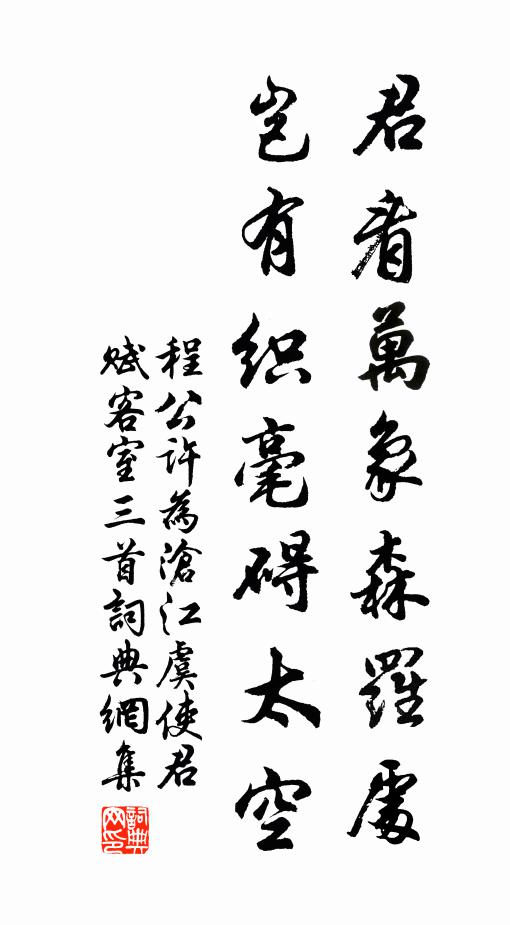 君看萬象森羅處
豈有织毫碍太空
程公許為滄江虞使君
賦客室三首詞典網集
詞典网印